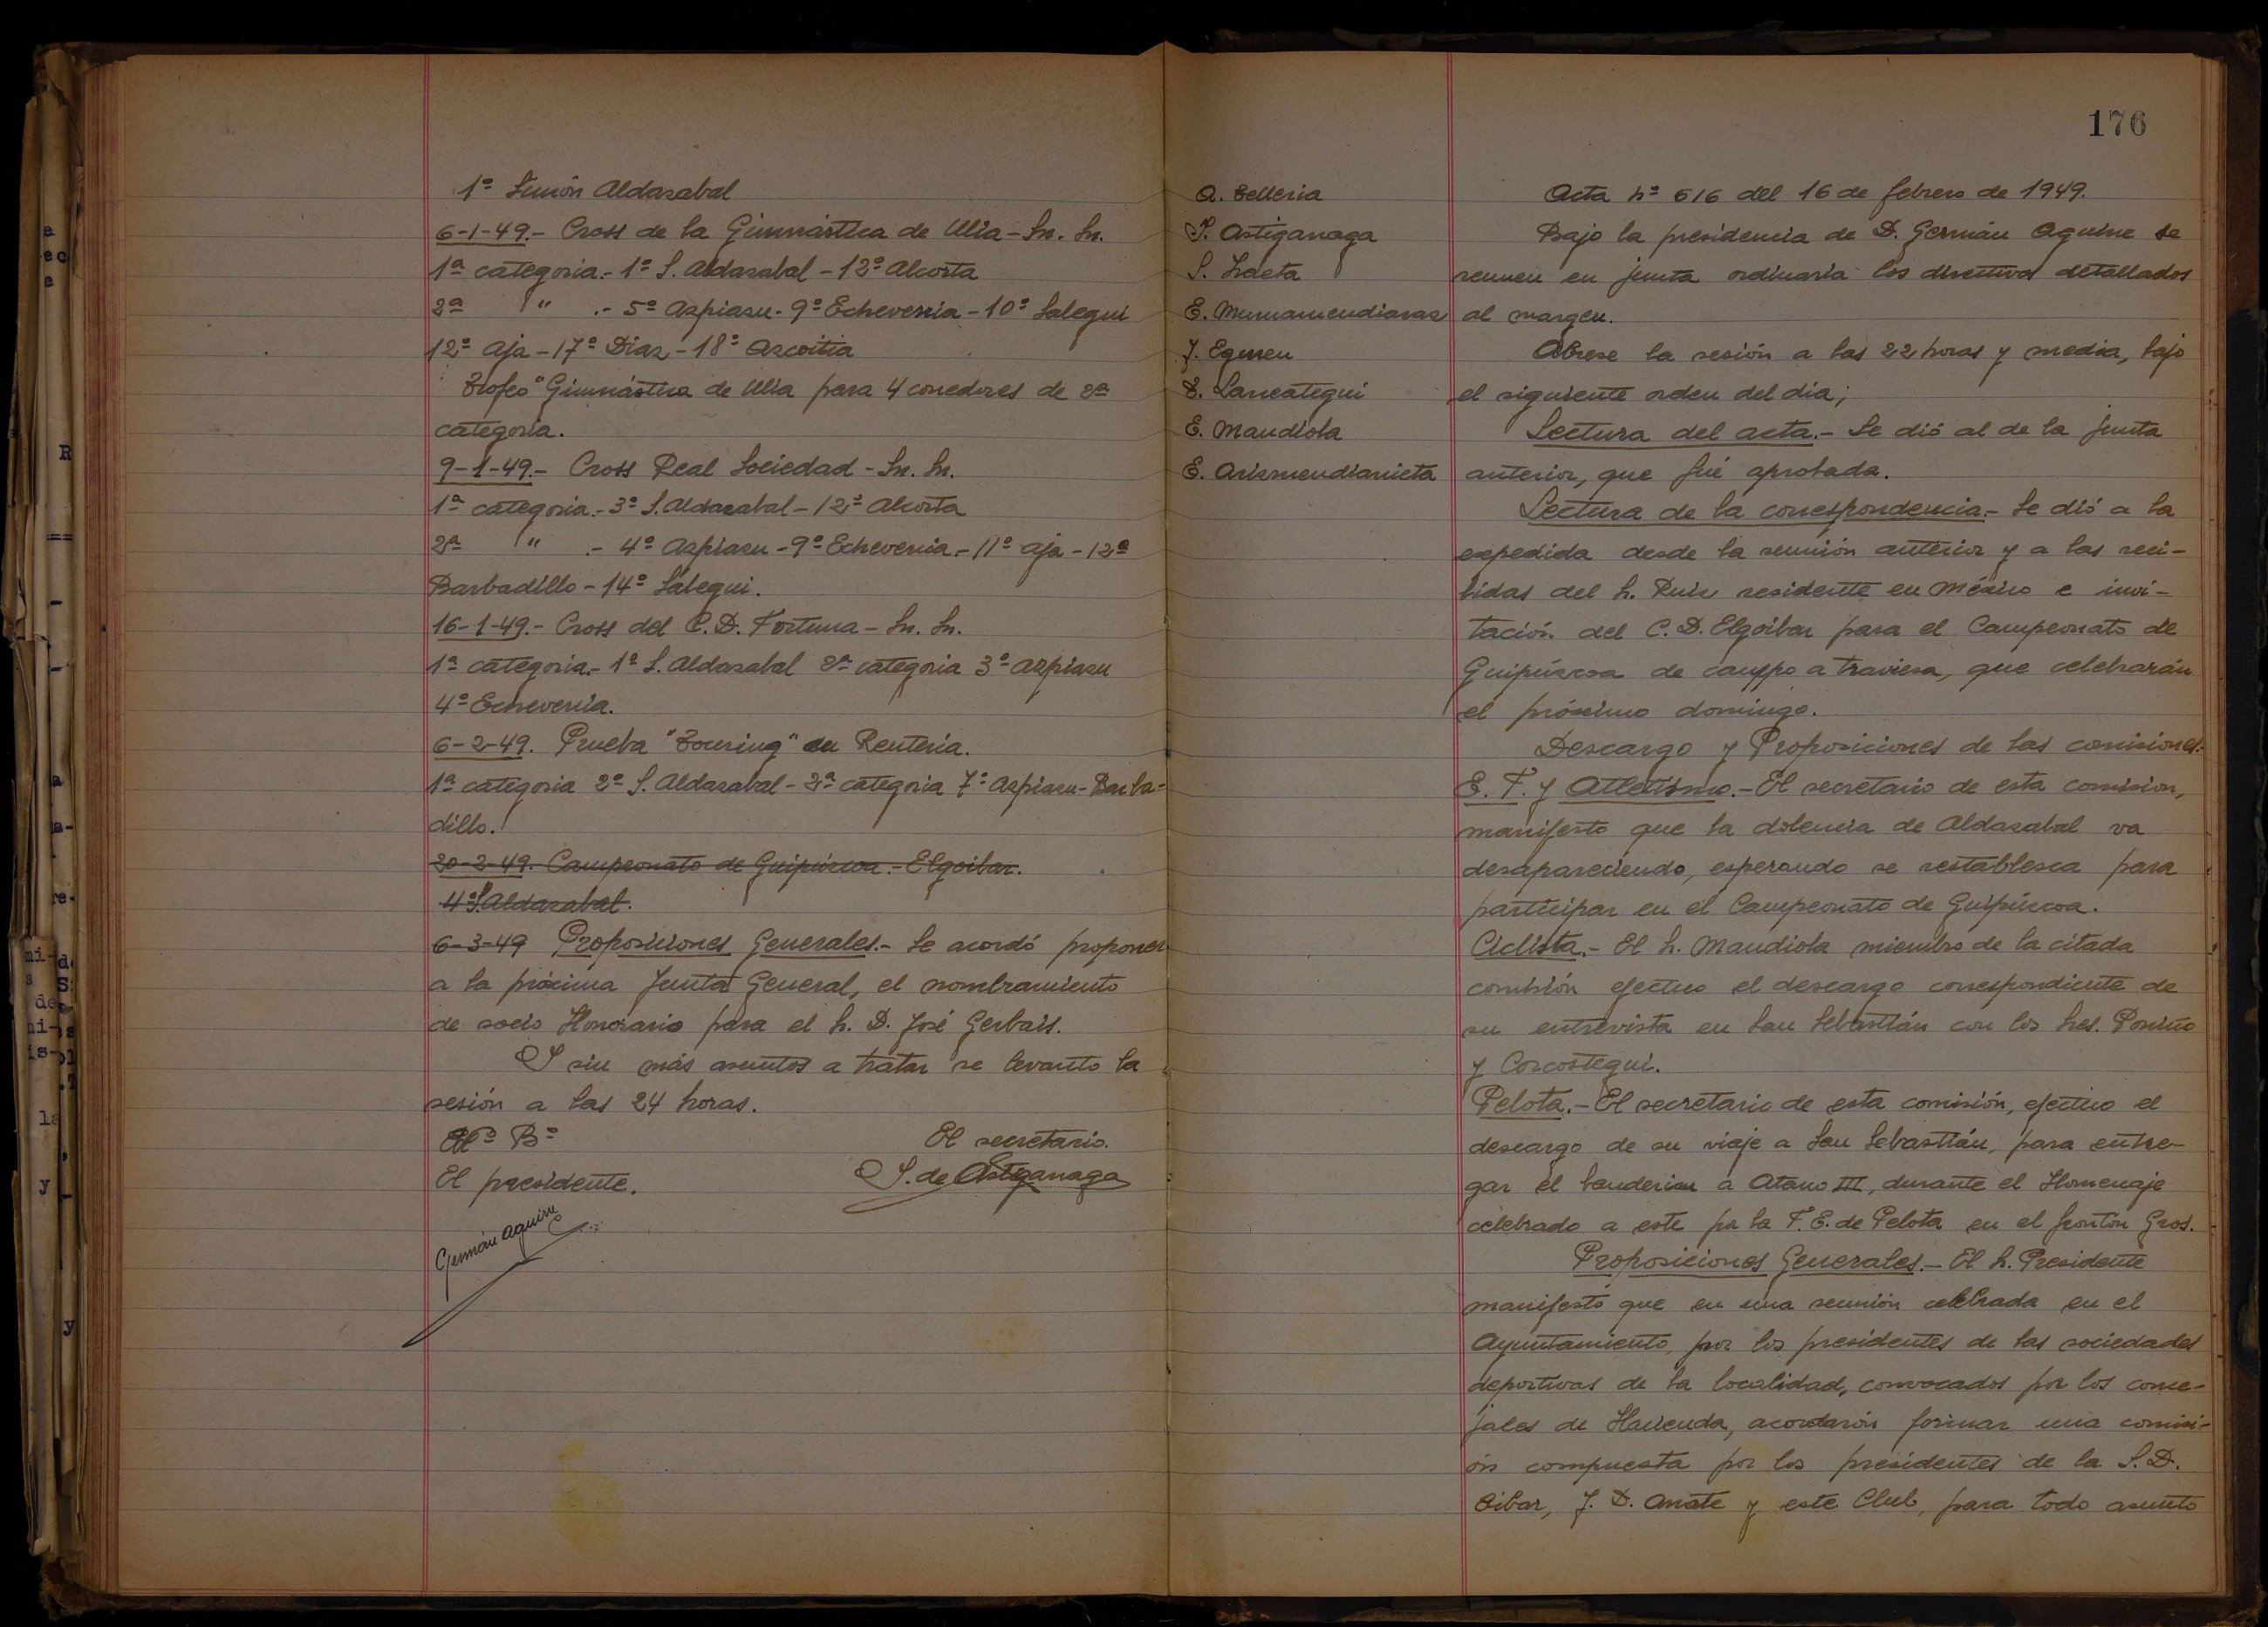 1º Simón Aldazabal
6-1-49.- Cross de la Gimnástica de Ulia - Sn. Sn.
1ª categoria.- 1º S. Aldazabal - 12º Alcorta
2ª " .- 5º Azpiazu - 9º Echeverria - 10º Salegui
12º Aja - 17º Diaz - 18º Azcoitia
Trofeo "Gimnástica de Ulia para 4 corredores de 2ª
categoria.
9-1-49.- Cross Real Sociedad - Sn. Sn.
1ª categoria.- 3º S. Aldazabal - 12º Alcorta
2ª " .- 4º Azpiazu - 9º Echeverria.- 11º Aja - 12º
Barbadillo - 14º Salegui.
16-1-49.- Cross del C.D. Fortuna - Sn. Sn.
1ª categoria.- 1º S. Aldazabal 2ª categoria 3º Azpiazu
4º Echeverria.
6-2-49. Prueba "Touring" en Renteria.
1ª categoria 2º S. Aldazabal - 2ª categoria 7º Azpiazu - Barba-
dillo.
20-2-49. Campeonato de Guipúzcoa.- Elgoibar.
4º S. Aldazabal.
6-3-49 Proposiciones Generales.- Se acordó proponer
a la próxima Junta General, el nombramiento
de socio Honorario para el S. D. José Gerbais.
Y sin más asuntos a tratar se levanto la
sesión a las 24 horas.
Vº Bº El secretario.
El presidente. S. de Astiganaga
Germán Aguirre
176
A. Telleria
S. Astiganaga
S. Iraeta
E. Mumamendiaraz
J. Eguren
E. Sarrategui
E. Mandiola
E. Arizmendiarrieta
Acta nº 616 del 16 de febrero de 1949.
Bajo la presidencia de D. Germán Aguirre se
reunen en junta ordinaria los directivos detallados
al margen.
Abrese la sesión a las 22 horas y media, bajo
el siguiente orden del dia;
Lectura del acta.- Se dió al de la junta
anterior, que fué aprobada.
Lectura de la correspondencia.- Se dió a la
expedida desde la reunión anterior y a las reci-
bidas del S. Ruiz residente en México e invi-
tación del C.D. Elgoibar para el Campeonato de
Guipúzcoa de campo a traviesa, que celebrarán
el próximo domingo.
Descargo y Proposiciones de las comisiones.
E. F. y Atletismo.- El secretario de esta comision,
manifesto que la dolencia de Aldazabal va
desapareciendo, esperando se restablesca para
participar en el Campeonato de Guipúzcoa.
Ciclista.- El S. Mandiola miembro de la citada
comisión efectuo el descargo correspondiente de
su entrevista en San Sebastián con los Sres. Poniño
y Corcostegui.
Pelota.- El secretario de esta comisión, efectuo el
descargo de su viaje a San Sebastián, para entre-
gar el banderin a Atano III, durante el Homenaje
celebrado a este por la F. E. de Pelota en el frontón Gros.
Proposiciones Generales.- El S. Presidente
manifesto que en una reunión celebrada en el
Ayuntamiento, por los presidentes de las sociedades
deportivas de la localidad, convocados por los conce-
jales de Hacienda, acordarón formar una comisi-
ón compuesta por los presidentes de la S.D.
Eibar, J. D. Arrate y este Club, para todo asunto